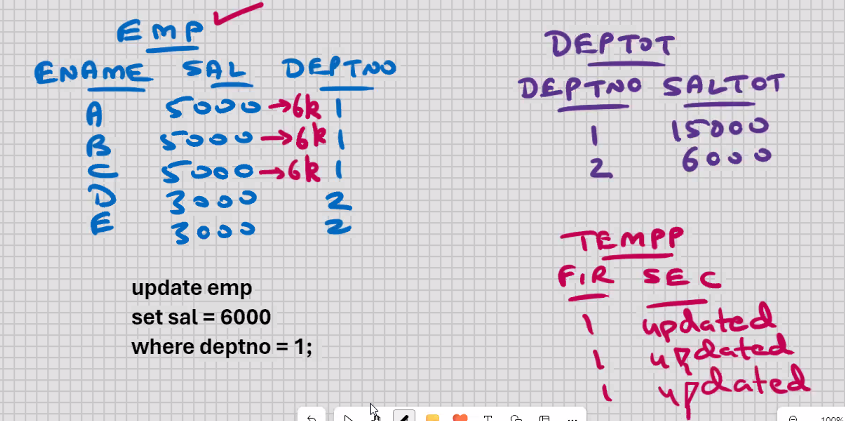 EMP
ENAME SAL DEPTNO
A 5000 →6k 1
B 5000 →6k 1
C 5000 →6k 1
D 3000 2
E 3000 2
update emp
set sal = 6000
where deptno = 1;
DEPTOT
DEPTNO SALTOT
1 15000
2 6000
TEMPP
FIR SEC
1 updated
1 updated
1 updated
T
100%